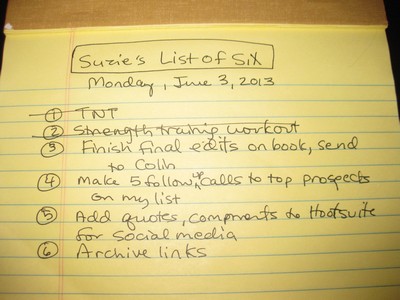 Suzie's List of Six
Monday, June 3, 2013
1 TNT
2 Strength training workout
3 Finish final edits on book, send
to Colin
4 Make 5 follow up calls to top prospects
on my list
5 Add quotes, comments to Hootsuite
for social media
6 Archive links